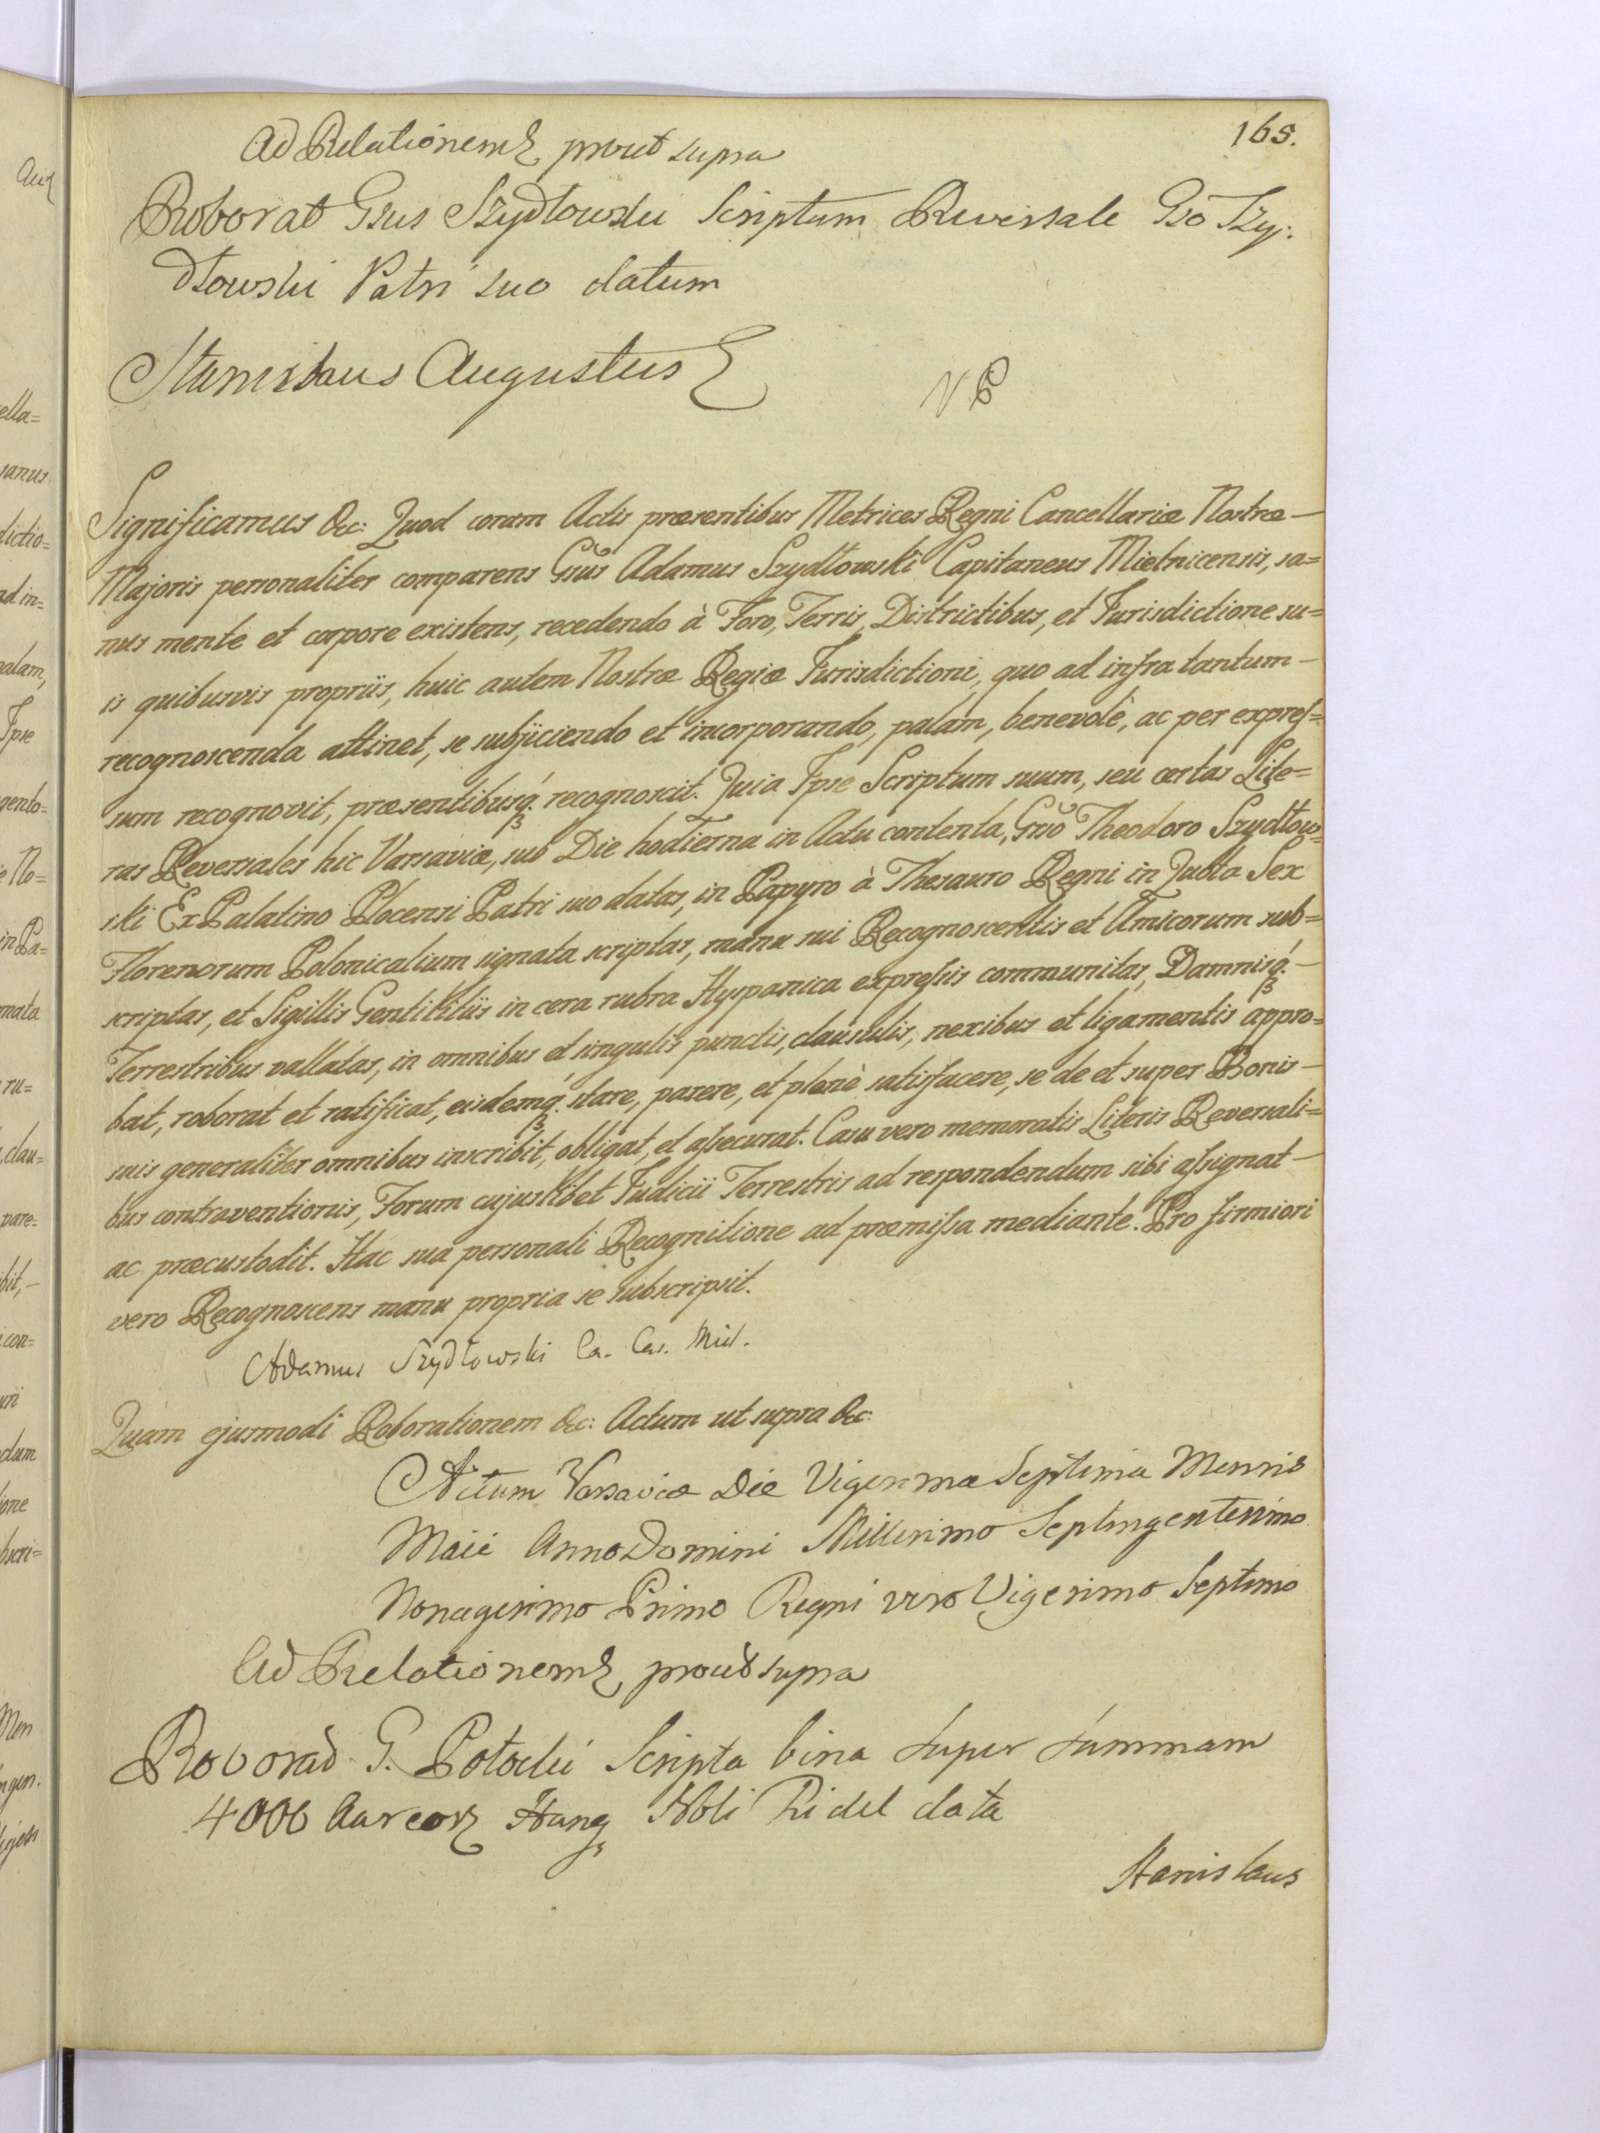 165.
Ad Relationem prout supra
Roborat Gsus Szydłowski Scriptum Reversale Gso Szy:
dłowski Patri suo datum
Stanislaus Augustus
Significamus &c: Quod coram Actis præsentibus Metrices Regni Cancellariæ Nostræ
Majoris personaliter comparens Gsus Adamus Szydłowski Capitaneus Mielnicensis, sa=
nus mente et corpore existens, recedendo à Foro, Terris, Districtibus, et Jurisdictione su=
is quibusvis propriis, huic autem Nostræ Regiæ Jurisdictioni, quo ad infra tantum
recognoscenda attinet, se subjiciendo et incorporando, palam, benevolè, ac per expres=
sum recognovit, præsentibusq. recognoscit. Quia Ipse Scriptum suum, seu certas Lite=
ras Reversales hic Varsaviæ, sub Die hodierna in Actu contenta, Gsō Theodoro Szydłow=
ski Ex Palatino Plocensi Patri suo datas, in Papyro à Thesauro Regni in Quota Sex
Florenorum Polonicalium signata scriptas, manu sui Recognoscentis et Amicorum sub=
scriptas, et Sigillis Gentilitiis in cera rubra Hyspanica expressis communitas, Damnisq.
Terrestribus vallatas, in omnibus et singulis punctis, clausulis, nexibus et ligamentis appro=
bat, roborat et ratificat, eisdemq. stare, parere, et plenè satisfacere, se de et super Bonis
suis generaliter omnibus inscribit, obligat, et assecurat. Casu vero memoratis Literis Reversali=
bus contraventionis, Forum cujuslibet Judicii Terrestris ad respondendum sibi assignat
ac præcustodit. Hac sua personali Recognitione ad præmissa mediante. Pro firmiori
vero Recognoscens manu propria se subscripsit.
Adamus Szydłowski Ca. Cas. Miel.
Quam ejusmodi Roborationem &c: Actum ut supra &c:
Actum Varsaviæ Die Vigesima Septima Mensis
Maii Anno Domini Millesimo Septingentesimo
Nonagesimo Primo Regni vero Vigesimo Septimo
Ad Relationem prout supra
Roborat G. Potocki Scripta bina super summam
4000 Aureor Hung Nbli Ridel data
Stanislaus